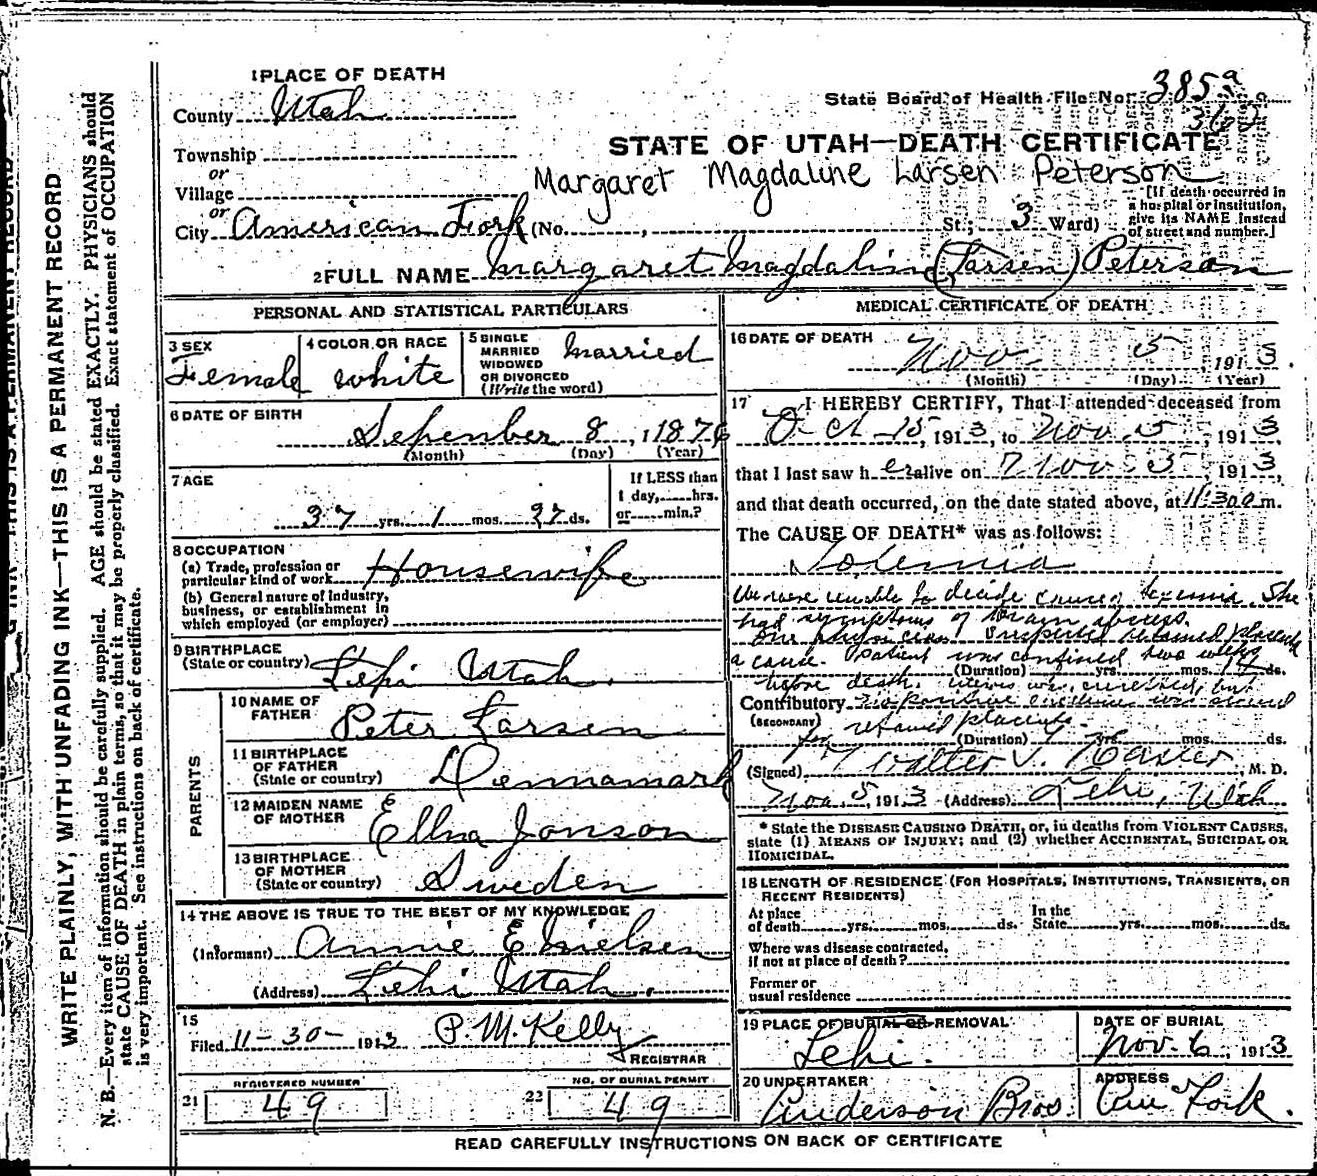 1 PLACE OF DEATH
County Utah
State Board of Health File No. 385a
362
Township
or
Village
or
City American Fork (No. , St; 3 Ward)
STATE OF UTAH—DEATH CERTIFICATE
Margaret Magdaline Larsen Peterson
[If death occurred in a hospital or institution, give its NAME instead of street and number.]
2 FULL NAME Margaret Magdalina (Larsen) Peterson
PERSONAL AND STATISTICAL PARTICULARS
3 SEX
Female
4 COLOR OR RACE
white
5 SINGLE
MARRIED
WIDOWED
OR DIVORCED
(Write the word)
Married
6 DATE OF BIRTH
Sepember 8, 1876
(Month) (Day) (Year)
7 AGE
37 yrs. 1 mos. 27 ds.
If LESS than
1 day, hrs.
or min.?
8 OCCUPATION
(a) Trade, profession or
particular kind of work Housewife
(b) General nature of industry,
business, or establishment in
which employed (or employer)
9 BIRTHPLACE
(State or country) Lehi Utah.
PARENTS
10 NAME OF
FATHER Peter Larsen
11 BIRTHPLACE
OF FATHER
(State or country) Dennamark
12 MAIDEN NAME
OF MOTHER Ellna Jonson
13 BIRTHPLACE
OF MOTHER
(State or country) Sweden
14 THE ABOVE IS TRUE TO THE BEST OF MY KNOWLEDGE
(Informant) Annie E Nielsen
(Address) Lehi Utah.
15
Filed 11-30- 1913 P. M. Kelly
REGISTRAR
REGISTERED NUMBER
21 49
NO. OF BURIAL PERMIT
22 49
MEDICAL CERTIFICATE OF DEATH
16 DATE OF DEATH
Nov 5, 1913.
(Month) (Day) (Year)
17 I HEREBY CERTIFY, That I attended deceased from
Oct 15, 1913, to Nov. 5, 1913
that I last saw her alive on Nov 5 1913,
and that death occurred, on the date stated above, at 11:30 a m.
The CAUSE OF DEATH* was as follows:
Toxemia
We were unable to decide cause of toxemia. She
had symptoms of brain abscess.
One physician suspected retained placenta
a cause. Patient was confined two weeks
(Duration) yrs. mos. 14 ds.
before death. Uterus was curetted, but
Contributory
(SECONDARY) for retained placenta.
(Duration) yrs. mos. ds.
(Signed) Walter T. Hasler, M. D.
Nov. 5, 1913 (Address) Lehi, Utah
* State the DISEASE CAUSING DEATH, or, in deaths from VIOLENT CAUSES,
state (1) MEANS OF INJURY; and (2) whether ACCIDENTAL, SUICIDAL OR
HOMICIDAL.
18 LENGTH OF RESIDENCE (FOR HOSPITALS, INSTITUTIONS, TRANSIENTS, OR
RECENT RESIDENTS)
At place
of death yrs. mos. ds.
In the
State yrs. mos. ds.
Where was disease contracted,
if not at place of death?
Former or
usual residence
19 PLACE OF BURIAL OR REMOVAL
Lehi.
DATE OF BURIAL
Nov. 6, 1913
20 UNDERTAKER
Anderson Bros.
ADDRESS
Am Fork.
READ CAREFULLY INSTRUCTIONS ON BACK OF CERTIFICATE
WRITE PLAINLY, WITH UNFADING INK—THIS IS A PERMANENT RECORD
N. B.—Every item of information should be carefully supplied. AGE should be stated EXACTLY. PHYSICIANS should
state CAUSE OF DEATH in plain terms, so that it may be properly classified. Exact statement of OCCUPATION
is very important. See instructions on back of certificate.